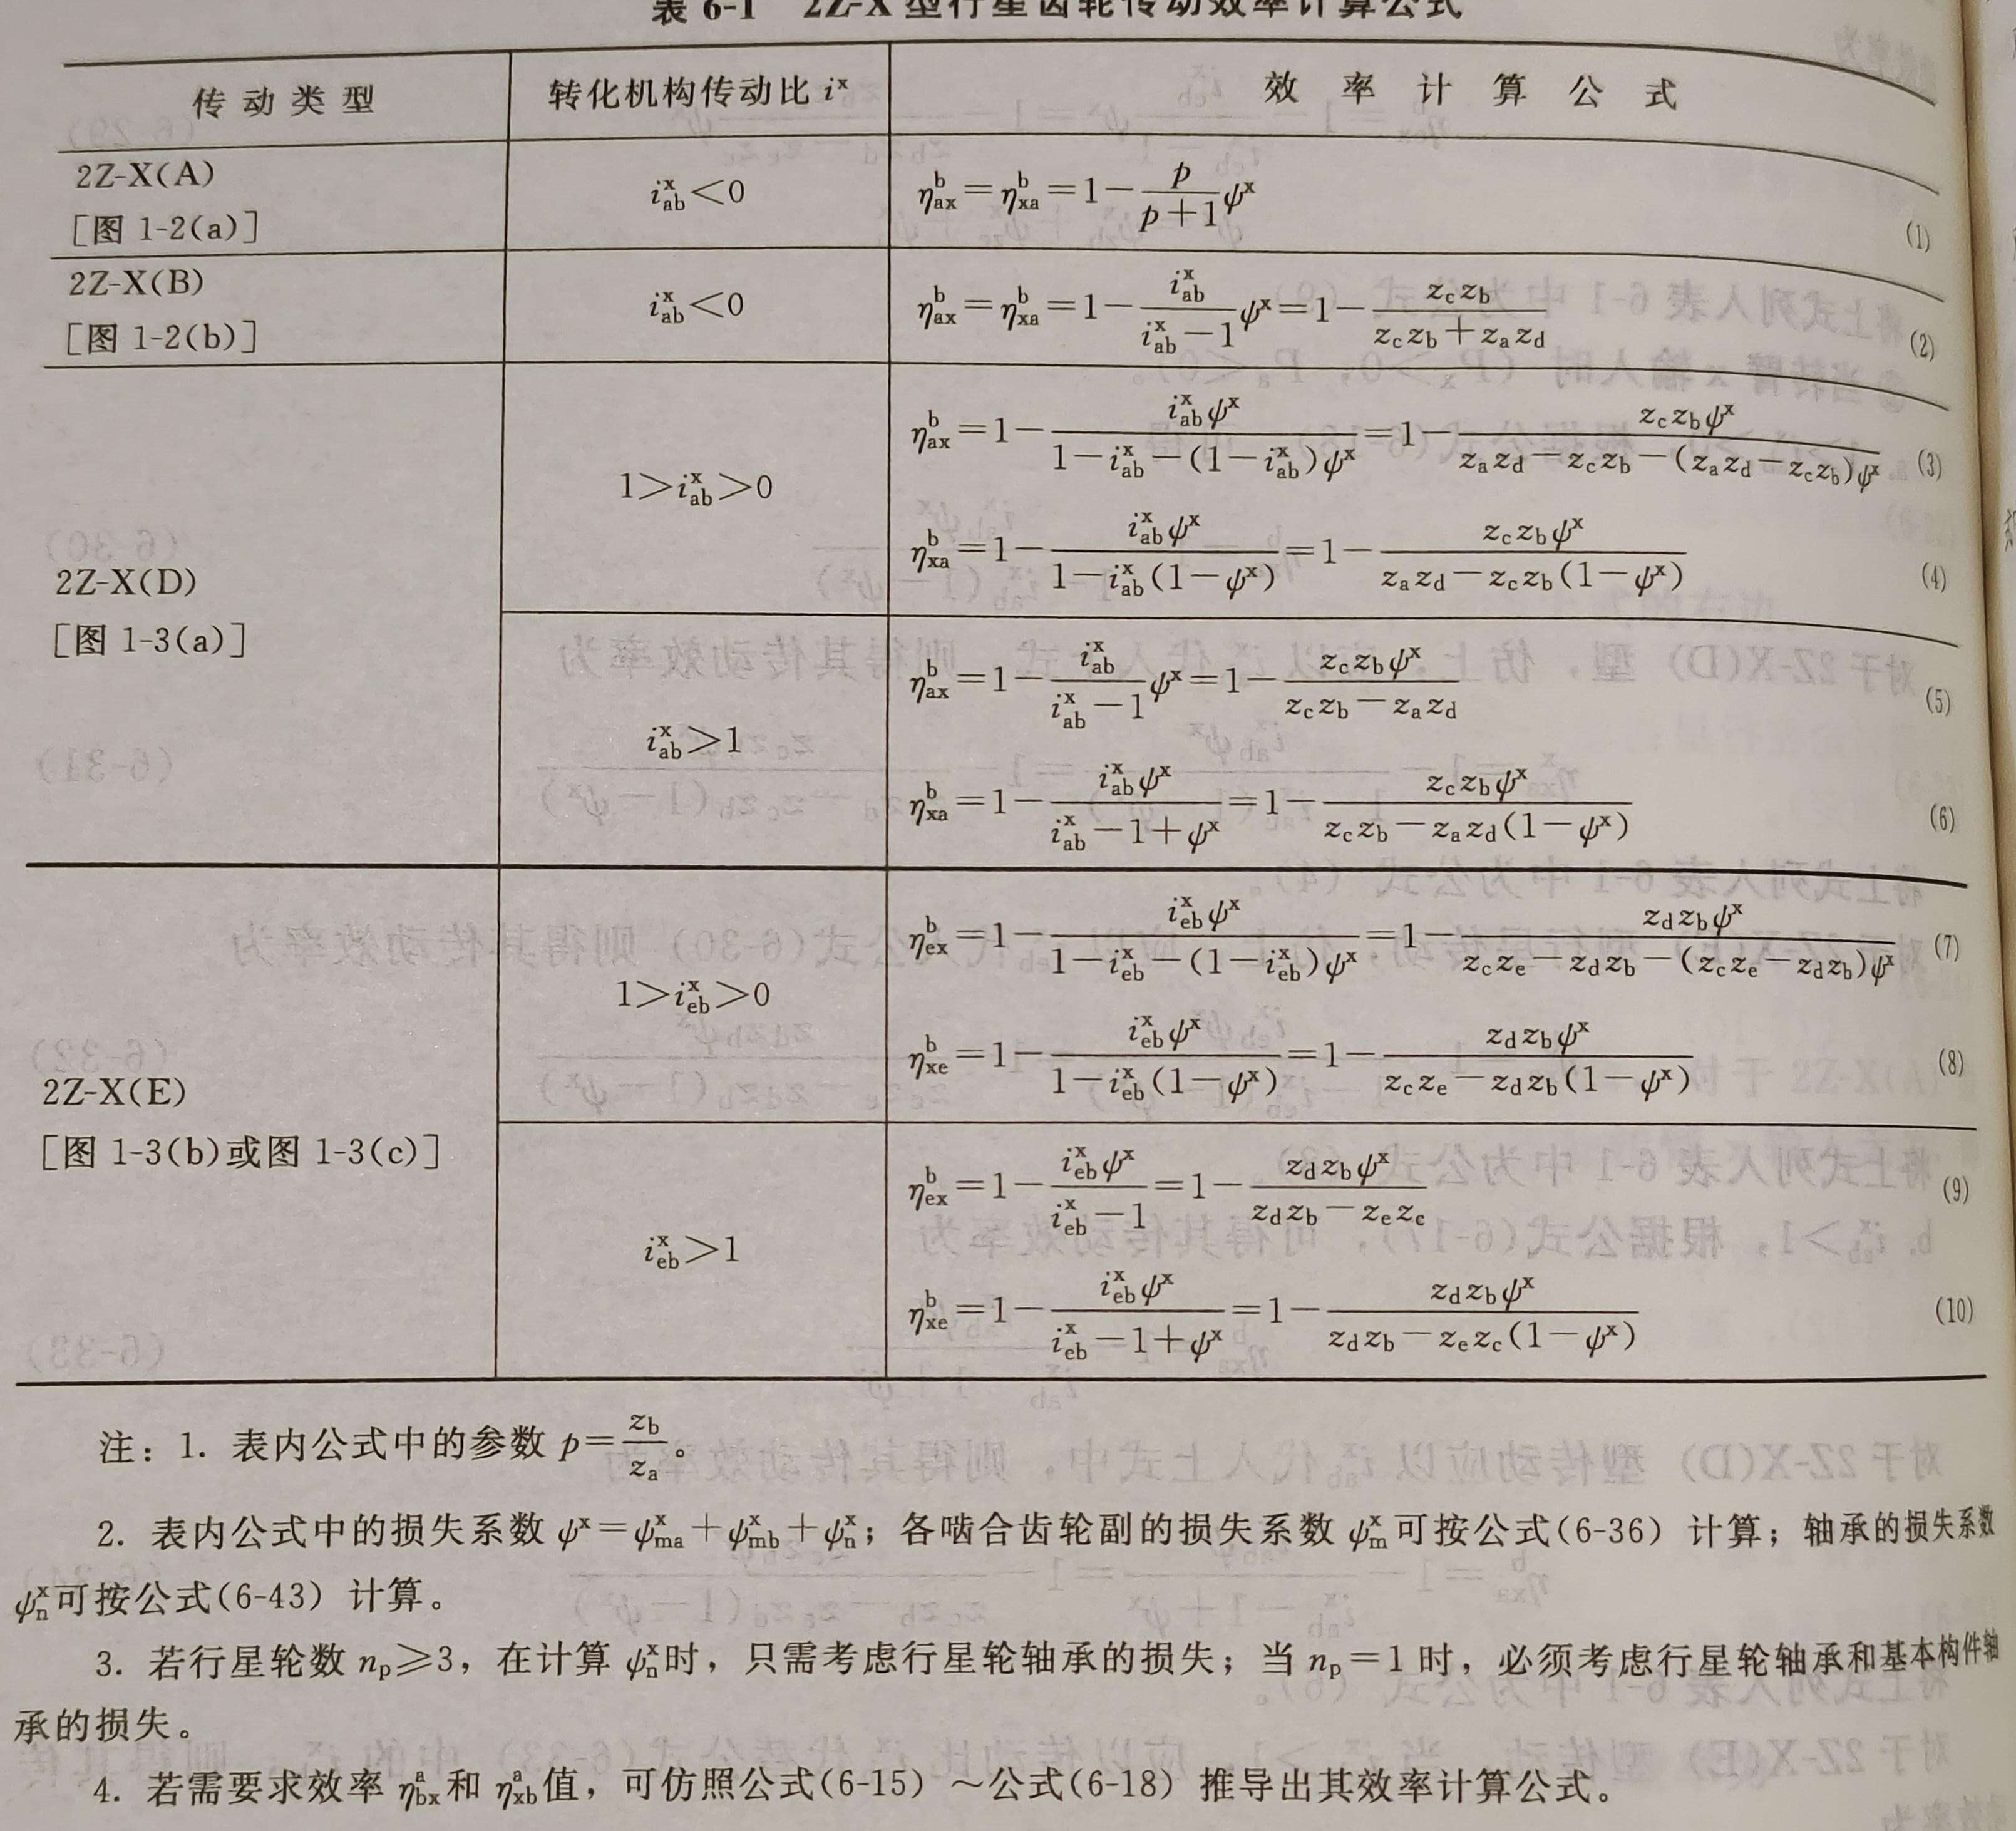 表 6-1 2Z-X 型行星齿轮传动效率计算公式
传动类型 转化机构传动比 iˣ 效率计算公式
2Z-X(A)
[图 1-2(a)]
i_{ab}^{x}<0
η_{ax}^{b}=η_{xa}^{b}=1-\frac{p}{p+1}ψ^{x} (1)
2Z-X(B)
[图 1-2(b)]
i_{ab}^{x}<0
η_{ax}^{b}=η_{xa}^{b}=1-\frac{i_{ab}^{x}}{i_{ab}^{x}-1}ψ^{x}=1-\frac{z_{c}z_{b}}{z_{c}z_{b}+z_{a}z_{d}} (2)
2Z-X(D)
[图 1-3(a)]
1>i_{ab}^{x}>0
η_{ax}^{b}=1-\frac{i_{ab}^{x}ψ^{x}}{1-i_{ab}^{x}-(1-i_{ab}^{x})ψ^{x}}=1-\frac{z_{c}z_{b}ψ^{x}}{z_{a}z_{d}-z_{c}z_{b}-(z_{a}z_{d}-z_{c}z_{b})ψ^{x}} (3)
η_{xa}^{b}=1-\frac{i_{ab}^{x}ψ^{x}}{1-i_{ab}^{x}(1-ψ^{x})}=1-\frac{z_{c}z_{b}ψ^{x}}{z_{a}z_{d}-z_{c}z_{b}(1-ψ^{x})} (4)
i_{ab}^{x}>1
η_{ax}^{b}=1-\frac{i_{ab}^{x}}{i_{ab}^{x}-1}ψ^{x}=1-\frac{z_{c}z_{b}ψ^{x}}{z_{c}z_{b}-z_{a}z_{d}} (5)
η_{xa}^{b}=1-\frac{i_{ab}^{x}ψ^{x}}{i_{ab}^{x}-1+ψ^{x}}=1-\frac{z_{c}z_{b}ψ^{x}}{z_{c}z_{b}-z_{a}z_{d}(1-ψ^{x})} (6)
2Z-X(E)
[图 1-3(b)或图 1-3(c)]
1>i_{eb}^{x}>0
η_{ex}^{b}=1-\frac{i_{eb}^{x}ψ^{x}}{1-i_{eb}^{x}-(1-i_{eb}^{x})ψ^{x}}=1-\frac{z_{d}z_{b}ψ^{x}}{z_{c}z_{e}-z_{d}z_{b}-(z_{c}z_{e}-z_{d}z_{b})ψ^{x}} (7)
η_{xe}^{b}=1-\frac{i_{eb}^{x}ψ^{x}}{1-i_{eb}^{x}(1-ψ^{x})}=1-\frac{z_{d}z_{b}ψ^{x}}{z_{c}z_{e}-z_{d}z_{b}(1-ψ^{x})} (8)
i_{eb}^{x}>1
η_{ex}^{b}=1-\frac{i_{eb}^{x}ψ^{x}}{i_{eb}^{x}-1}=1-\frac{z_{d}z_{b}ψ^{x}}{z_{d}z_{b}-z_{e}z_{c}} (9)
η_{xe}^{b}=1-\frac{i_{eb}^{x}ψ^{x}}{i_{eb}^{x}-1+ψ^{x}}=1-\frac{z_{d}z_{b}ψ^{x}}{z_{d}z_{b}-z_{e}z_{c}(1-ψ^{x})} (10)
注：1. 表内公式中的参数 p=\frac{z_{b}}{z_{a}}。
2. 表内公式中的损失系数 ψ^{x}=ψ_{ma}^{x}+ψ_{mb}^{x}+ψ_{n}^{x}；各啮合齿轮副的损失系数 ψ_{m}^{x}可按公式(6-36) 计算；轴承的损失系数
ψ_{n}^{x}可按公式(6-43) 计算。
3. 若行星轮数 n_{p}≥3，在计算 ψ_{n}^{x}时，只需考虑行星轮轴承的损失；当 n_{p}=1 时，必须考虑行星轮轴承和基本构件轴
承的损失。
4. 若需要求效率 η_{bx}^{a}和 η_{xb}^{a}值，可仿照公式(6-15) ～公式(6-18) 推导出其效率计算公式。